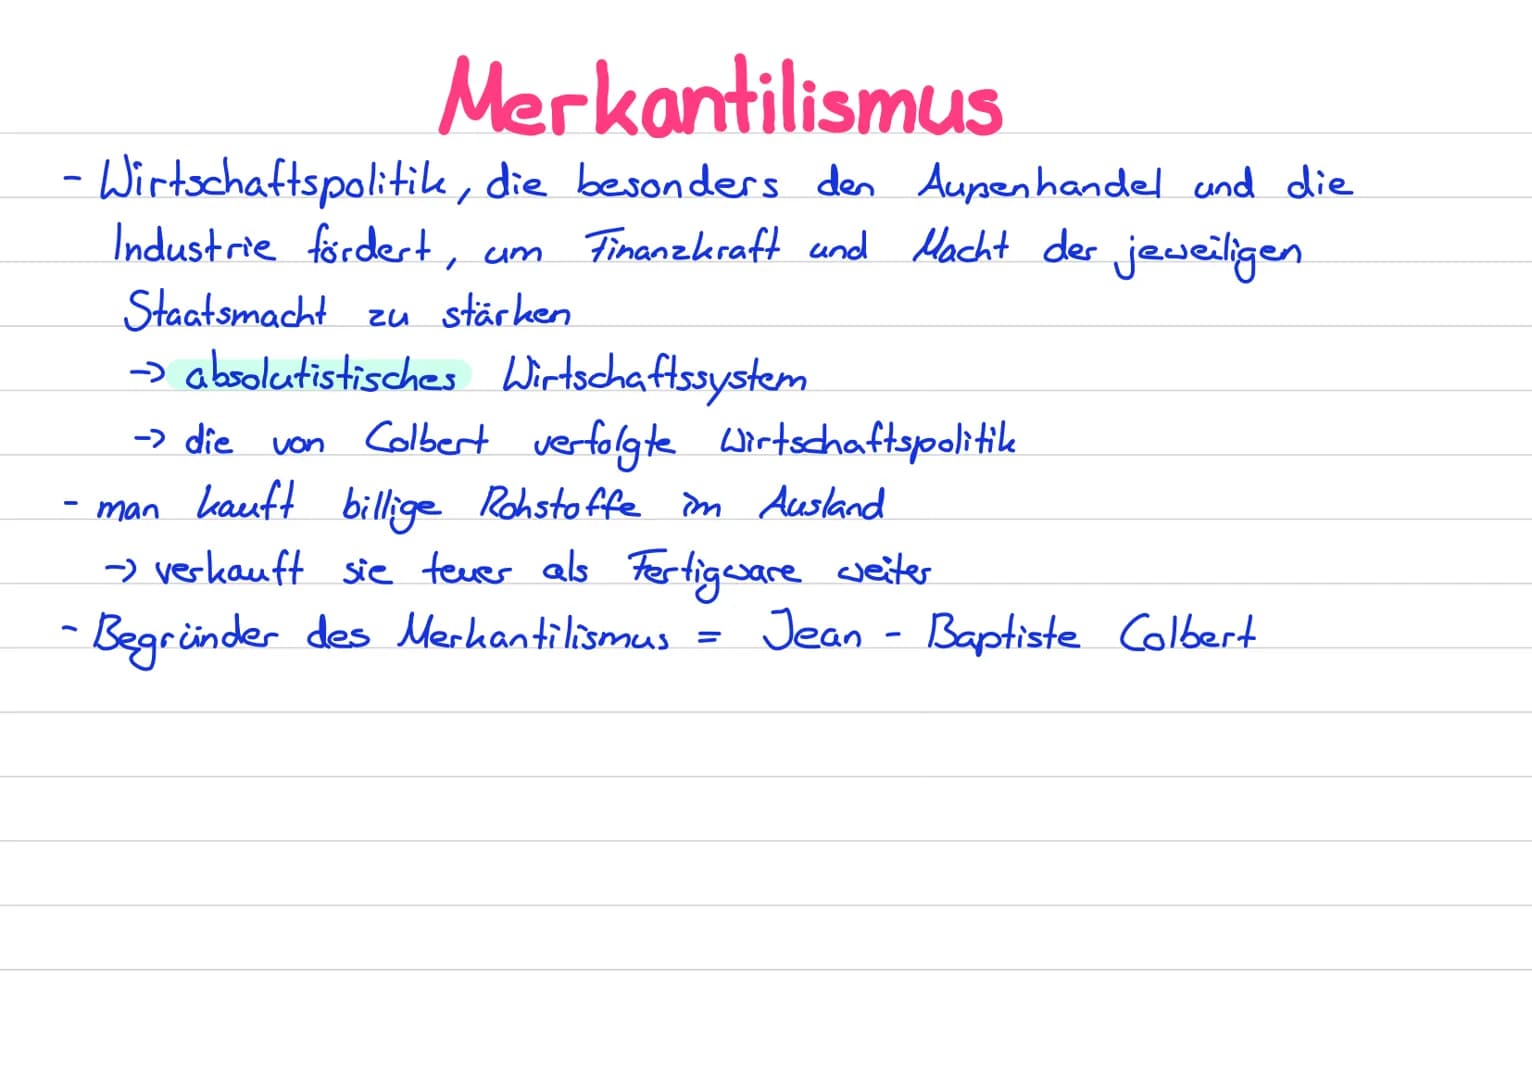 Merkantilismus
- Wirtschaftspolitik, die besonders den Außenhandel und die
Industrie fördert, um Finanzkraft und Macht der jeweiligen
Staatsmacht zu stärken
-> absolutistisches Wirtschaftssystem
-> die von Colbert verfolgte Wirtschaftspolitik
- man kauft billige Rohstoffe im Ausland
-> verkauft sie teuer als Fertigware weiter
- Begründer des Merkantilismus = Jean - Baptiste Colbert